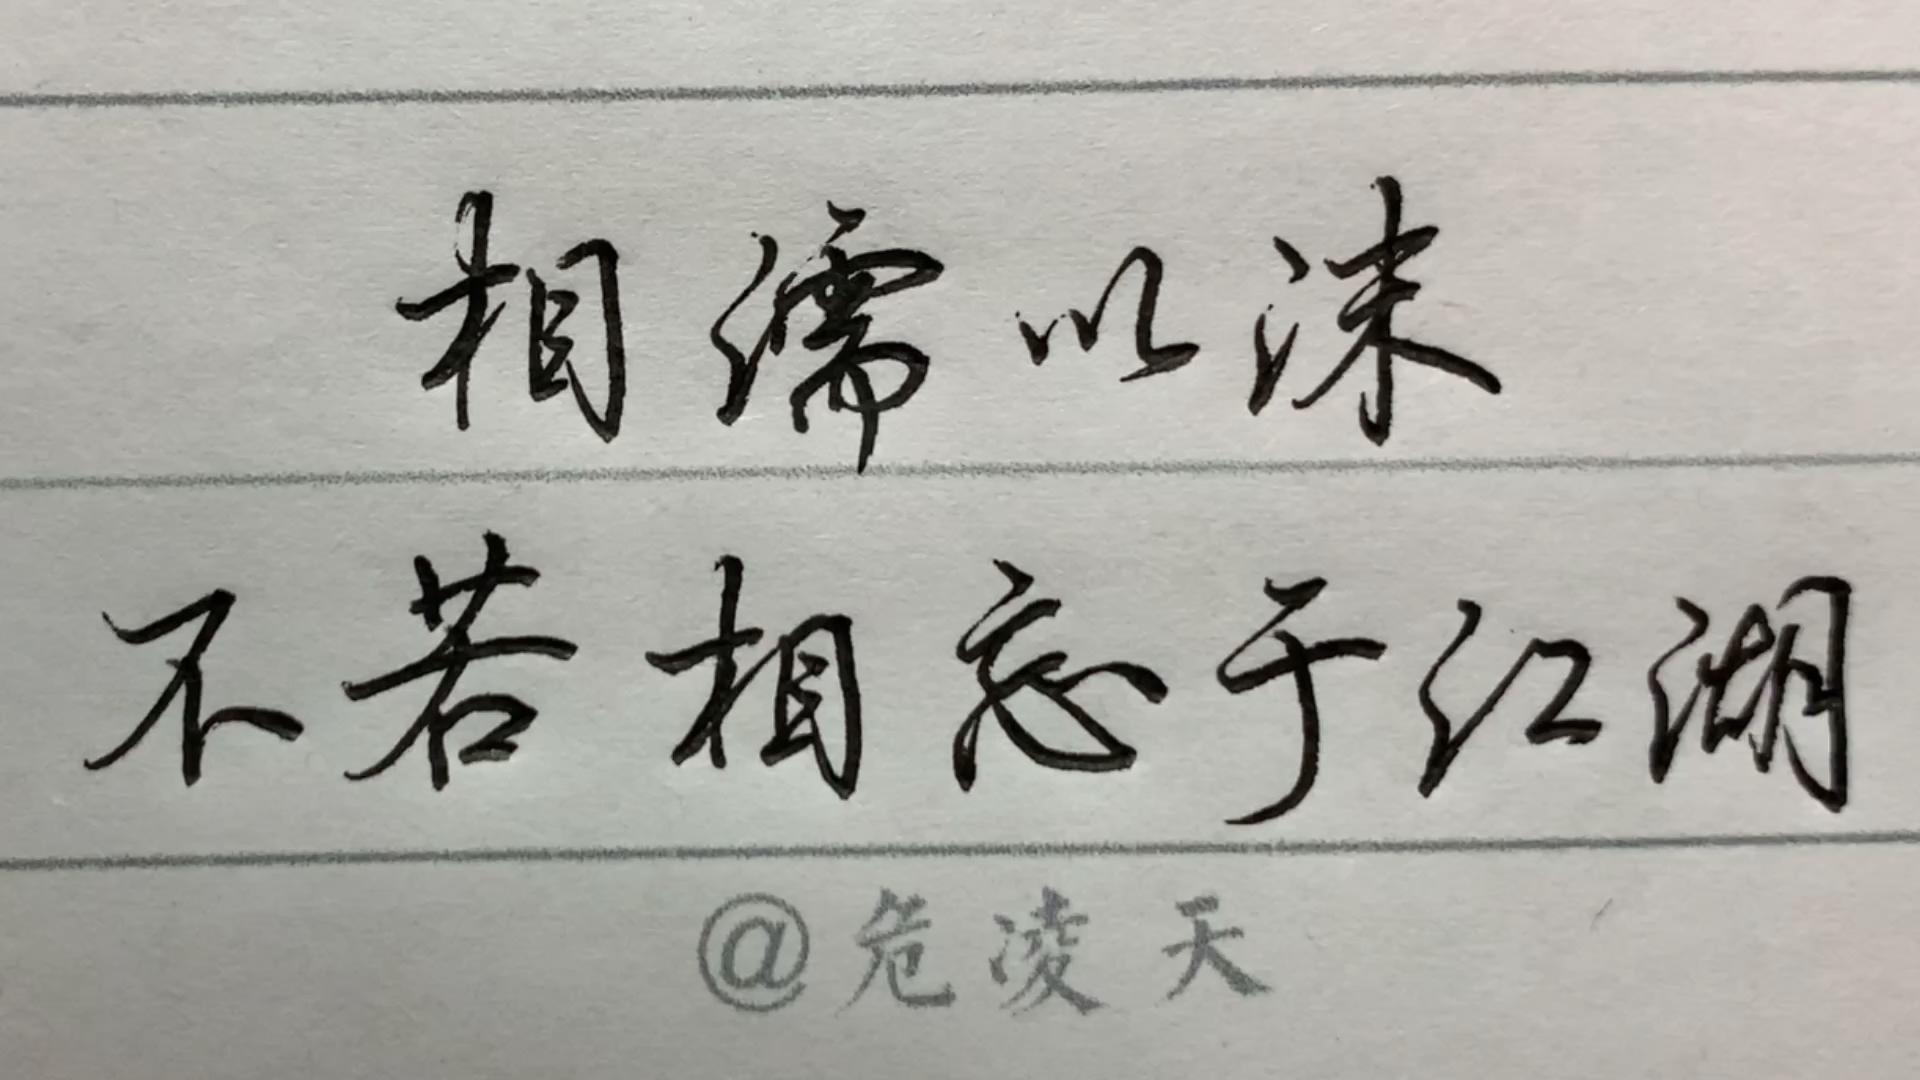 相濡以沫
不若相忘于江湖
@危凌天